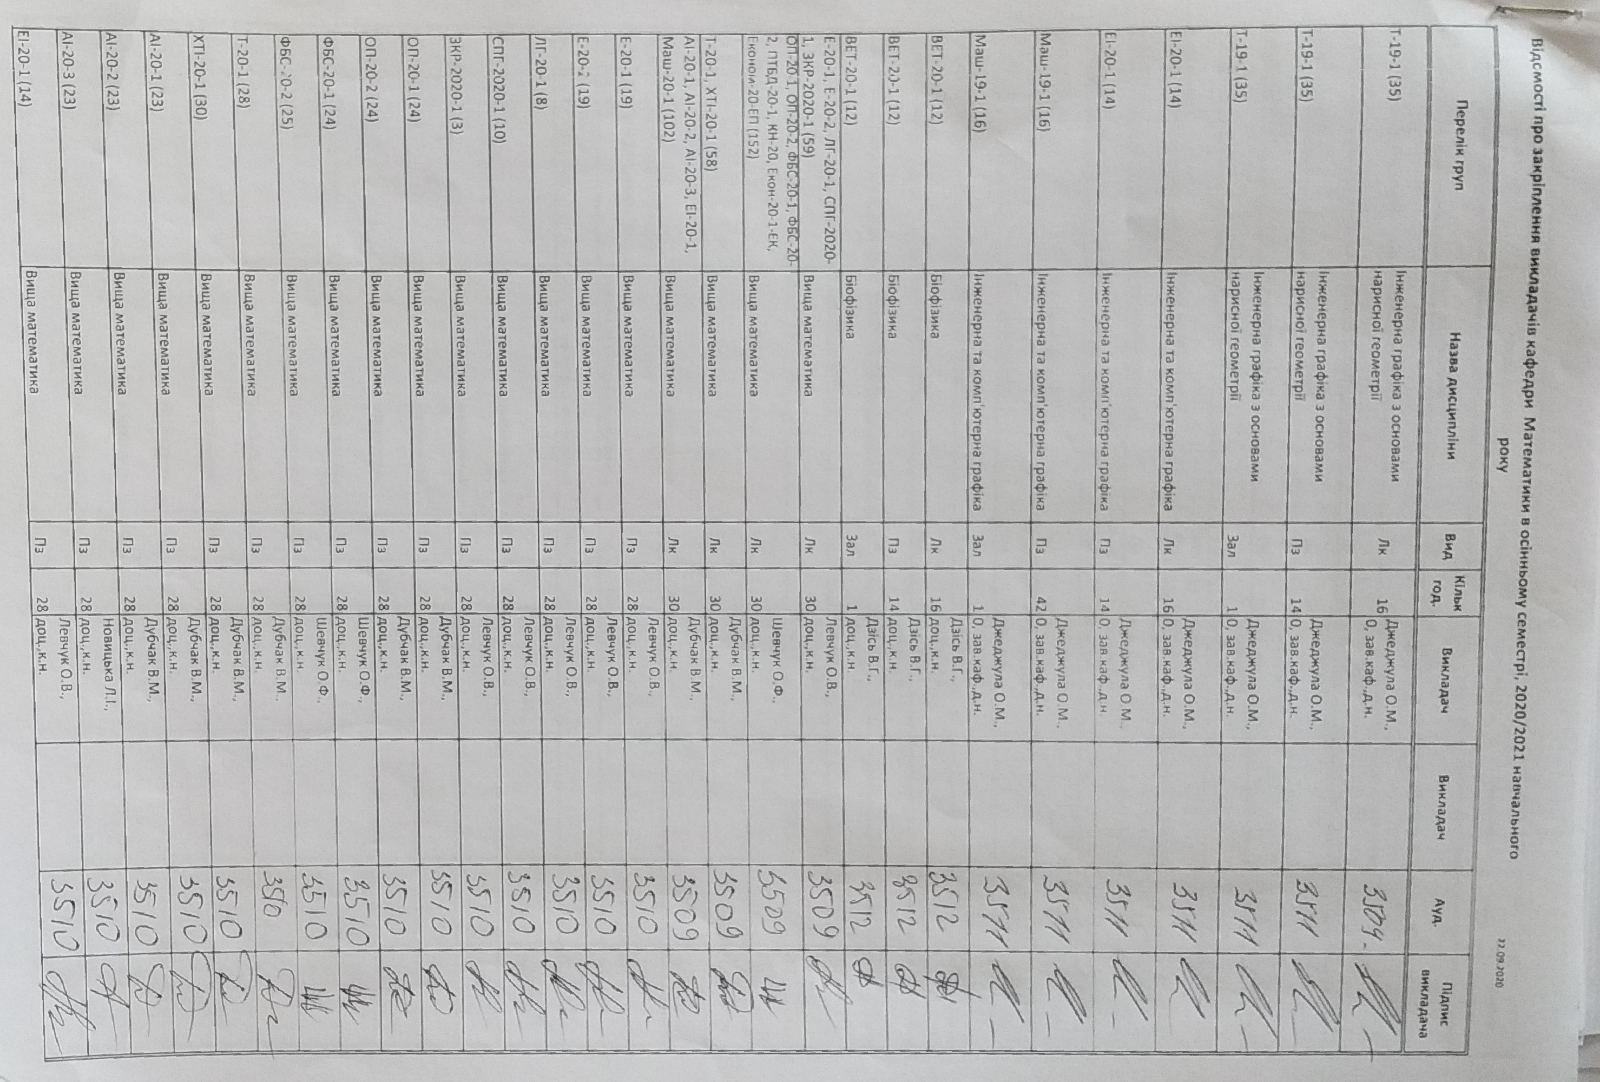 Відомості про закріплення викладачів кафедри Математики в осінньому семестрі, 2020/2021 навчального
року
22.09.2020
Перелік груп Назва дисципліни Вид Кільк год. Викладач Викладач Ауд. Підпис викладача
Т-19-1 (35) Інженерна графіка з основами нарисної геометрії Лк 16 Джеджула О.М., 0, зав.каф.,д.н. 3509
Т-19-1 (35) Інженерна графіка з основами нарисної геометрії Пз 14 Джеджула О.М., 0, зав.каф.,д.н. 3511
Т-19-1 (35) Інженерна графіка з основами нарисної геометрії Зал 1 Джеджула О.М., 0, зав.каф.,д.н. 3511
ЕІ-20-1 (14) Інженерна та комп'ютерна графіка Лк 16 Джеджула О.М., 0, зав.каф.,д.н. 3511
ЕІ-20-1 (14) Інженерна та комп'ютерна графіка Пз 14 Джеджула О.М., 0, зав.каф.,д.н. 3511
Маш-19-1 (16) Інженерна та комп'ютерна графіка Пз 42 Джеджула О.М., 0, зав.каф.,д.н. 3511
Маш-19-1 (16) Інженерна та комп'ютерна графіка Зал 1 Джеджула О.М., 0, зав.каф.,д.н. 3511
ВЕТ-20-1 (12) Біофізика Лк 16 Дзісь В.Г., доц.,к.н. 3512
ВЕТ-20-1 (12) Біофізика Пз 14 Дзісь В.Г., доц.,к.н. 3512
ВЕТ-20-1 (12) Біофізика Зал 1 Дзісь В.Г., доц.,к.н. 3512
Е-20-1, Е-20-2, ЛГ-20-1, СПГ-2020-1, ЗКР-2020-1 (59) Вища математика Лк 30 Левчук О.В., доц.,к.н. 3509
ОП-20-1, ОП-20-2, ФБС-20-1, ФБС-20-2, ПТБД-20-1, КН-20, Екон-20-1-ЕК, Економ-20-ЕП (152) Вища математика Лк 30 Шевчук О.Ф., доц.,к.н. 3509
Т-20-1, ХТІ-20-1 (58) Вища математика Лк 30 Дубчак В.М., доц.,к.н. 3509
АІ-20-1, АІ-20-2, АІ-20-3, ЕІ-20-1, Маш-20-1 (102) Вища математика Лк 30 Дубчак В.М., доц.,к.н. 3509
Е-20-1 (19) Вища математика Пз 28 Левчук О.В., доц.,к.н. 3510
Е-20-2 (19) Вища математика Пз 28 Левчук О.В., доц.,к.н. 3510
ЛГ-20-1 (8) Вища математика Пз 28 Левчук О.В., доц.,к.н. 3510
СПГ-2020-1 (10) Вища математика Пз 28 Левчук О.В., доц.,к.н. 3510
ЗКР-2020-1 (3) Вища математика Пз 28 Левчук О.В., доц.,к.н. 3510
ОП-20-1 (24) Вища математика Пз 28 Дубчак В.М., доц.,к.н. 3510
ОП-20-2 (24) Вища математика Пз 28 Дубчак В.М., доц.,к.н. 3510
ФБС-20-1 (24) Вища математика Пз 28 Шевчук О.Ф., доц.,к.н. 3510
ФБС-20-2 (25) Вища математика Пз 28 Шевчук О.Ф., доц.,к.н. 3510
Т-20-1 (28) Вища математика Пз 28 Дубчак В.М., доц.,к.н. 3510
ХТІ-20-1 (30) Вища математика Пз 28 Дубчак В.М., доц.,к.н. 3510
АІ-20-1 (23) Вища математика Пз 28 Дубчак В.М., доц.,к.н. 3510
АІ-20-2 (23) Вища математика Пз 28 Дубчак В.М., доц.,к.н. 3510
АІ-20-3 (23) Вища математика Пз 28 Новицька Л.І., доц.,к.н. 3510
ЕІ-20-1 (14) Вища математика Пз 28 Левчук О.В., доц.,к.н. 3510